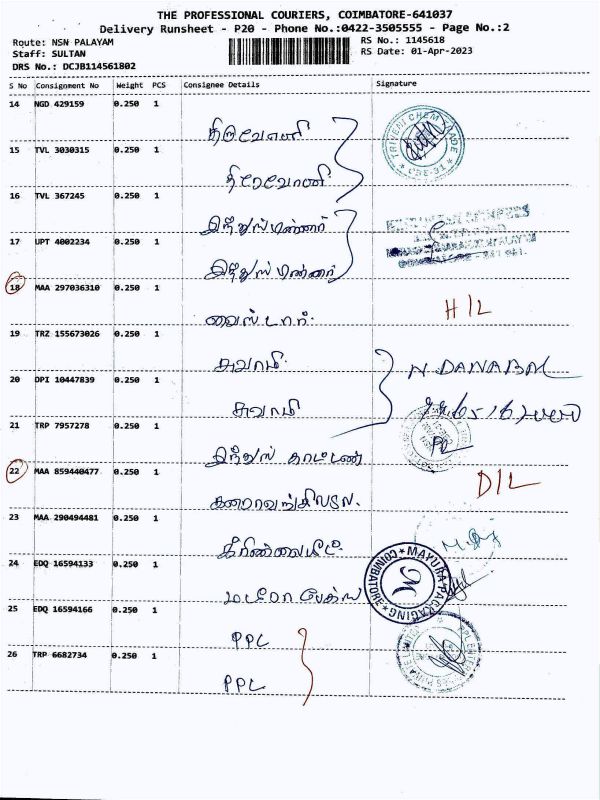 THE PROFESSIONAL COURIERS, COIMBATORE-641037
Delivery Runsheet - P20 - Phone No.:0422-3505555 - Page No.:2
Route: NSN PALAYAM
Staff: SULTAN
DRS No.: DCJB114561802
RS No.: 1145618
RS Date: 01-Apr-2023
S No Consignment No Weight PCS Consignee Details Signature
14 NGD 429159 0.250 1
திருவேணி
15 TVL 3030315 0.250 1
திரிவேணி
16 TVL 367245 0.250 1
இந்துஸ் மண்ணர்
17 UPT 4002234 0.250 1
இந்துஸ் மண்ணர்
18 MAA 297036310 0.250 1
வைஸ்டார். H/L
19 TRZ 155673026 0.250 1
சுவாமி N DANABAL
20 DPI 10447839 0.250 1
சுவாமி
21 TRP 7957278 0.250 1
இந்துஸ் காட்டன்
22 MAA 859440477 0.250 1
D/L
23 MAA 290494481 0.250 1
24 EDQ 16594133 0.250 1
MAYURA PACKAGING COIMBATORE
25 EDQ 16594166 0.250 1
PPL
26 TRP 6682734 0.250 1
PPL